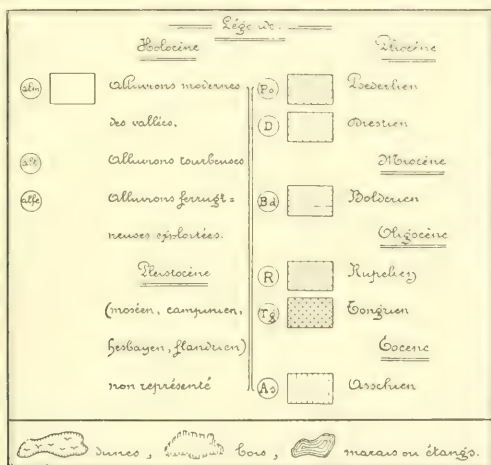 Légende.
Holocène
alm Alluvions modernes
des vallées.
alt Alluvions tourbeuses
alfe Alluvions ferrugi=
neuses exploitées.
Pleistocène
(moséen, campinien,
hesbayen, flandrien)
non représenté
Pliocène
Po Poederlien
D Diestien
Miocène
Bd Bolderien
Oligocène
R Rupelien
Tg Tongrien
Eocene
As Asschien
dunes, bois, marais ou étangs.